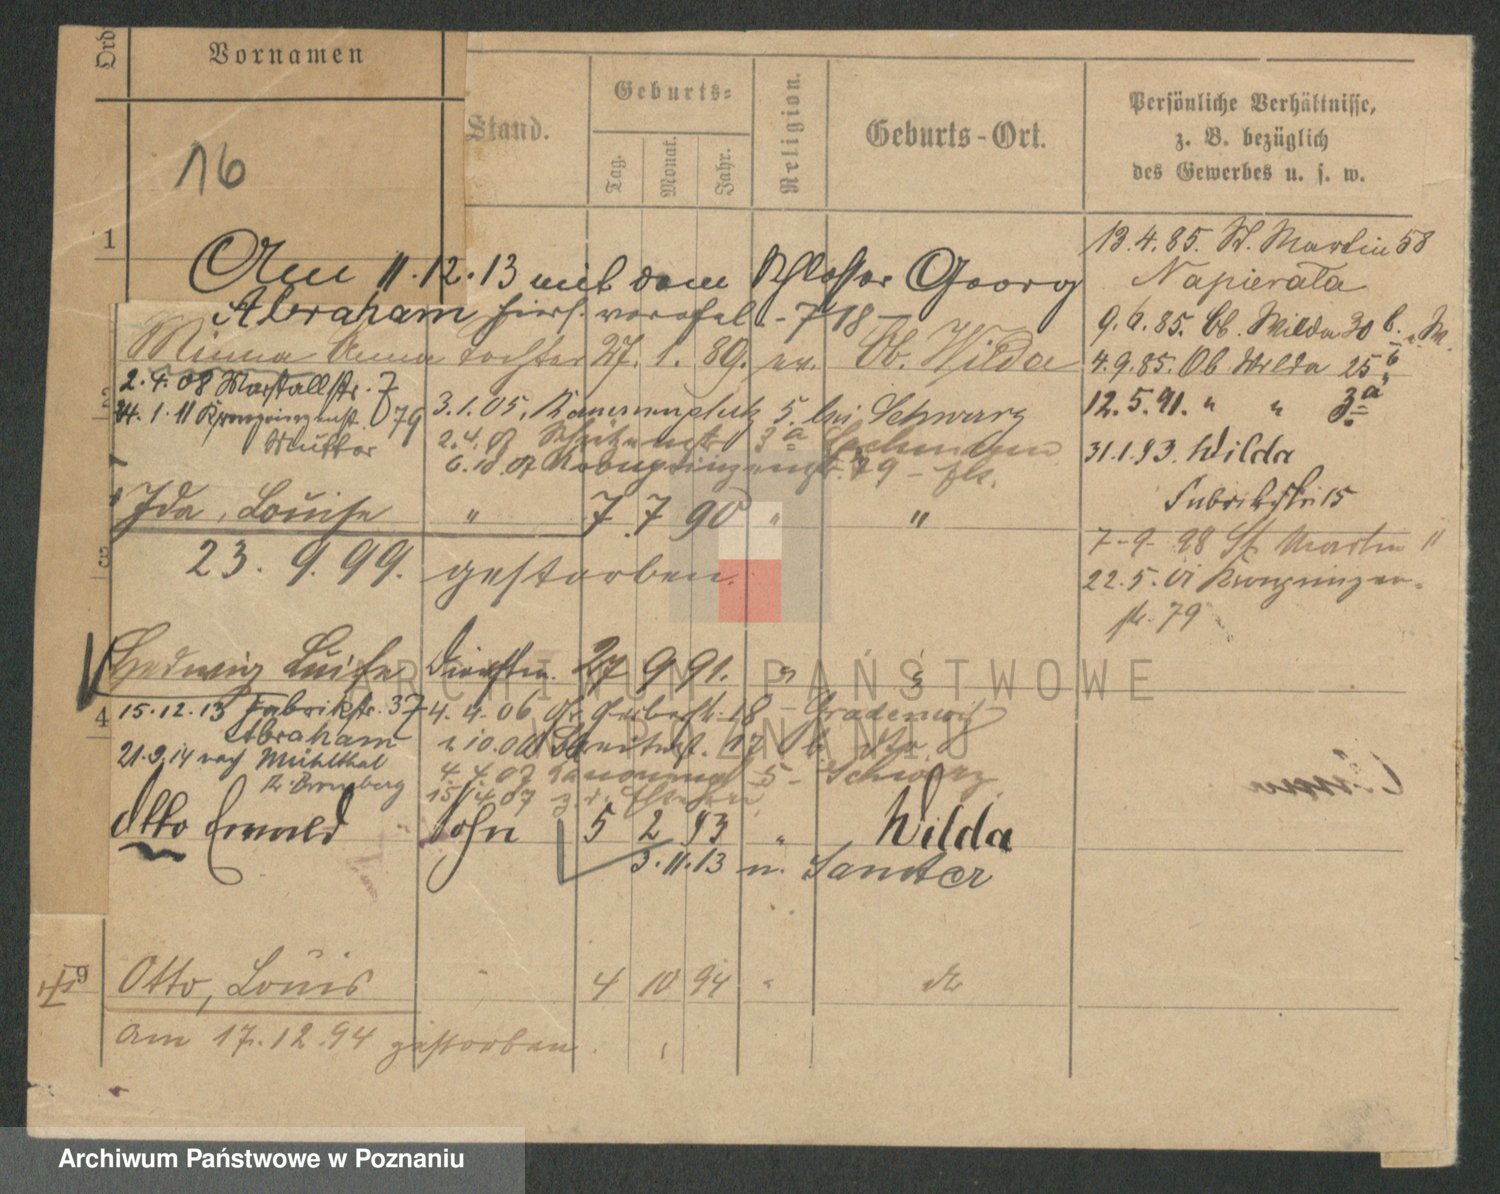 Ord
Vornamen
Stand.
Geburts-
Tag.
Monat.
Jahr.
Religion.
Geburts-Ort.
Persönliche Verhältnisse,
z. B. bezüglich
des Gewerbes u. s. w.
16
1
Am 11.12.13 mit dem Schlosser Georg
Abraham hiers. verehel. - 718 -
Minna Anna Tochter 27. 1. 89. ev. Ob. Wilda
2.4.08 Marstallstr. 7
24.1.11 Kronprinzenst. 79
Mutter
3.1.05. 5. bei Schwarz
2.4.07 Schützenstr. 3a
6.10.07 Kronprinzenstr. 79 -
2
Ida, Louise " 7 7 90 " "
3
23. 9. 99. gestorben.
Hedwig Luise Dienstm. 27 9 91. " "
4
15.12.13 Fabrikstr. 37
Abraham
21.9.14 nach Mühlthal
Kr. Bromberg
4.4.06 Gr. Gerberstr. 18 -
4.4.07 5 - Schwarz
15.4.07
Otto Ewald Sohn 5 2 93 " Wilda
3.11.13 n. Samter
9
Otto, Louis " 4 10 94 "
am 17.12.94 gestorben.
13.4.85. St. Martin 58
Napierala
9.6.85. Ob. Wilda 30 b.
4.9.85. Ob Wilda 25 b
12.5.91. " " 3a
31.1.93. Wilda
Fabrikstr. 15
7-9-98 St Martin 11
22.5.01 Kronprinzen-
str. 79
ARCHIWUM PAŃSTWOWE
W POZNANIU
Archiwum Państwowe w Poznaniu